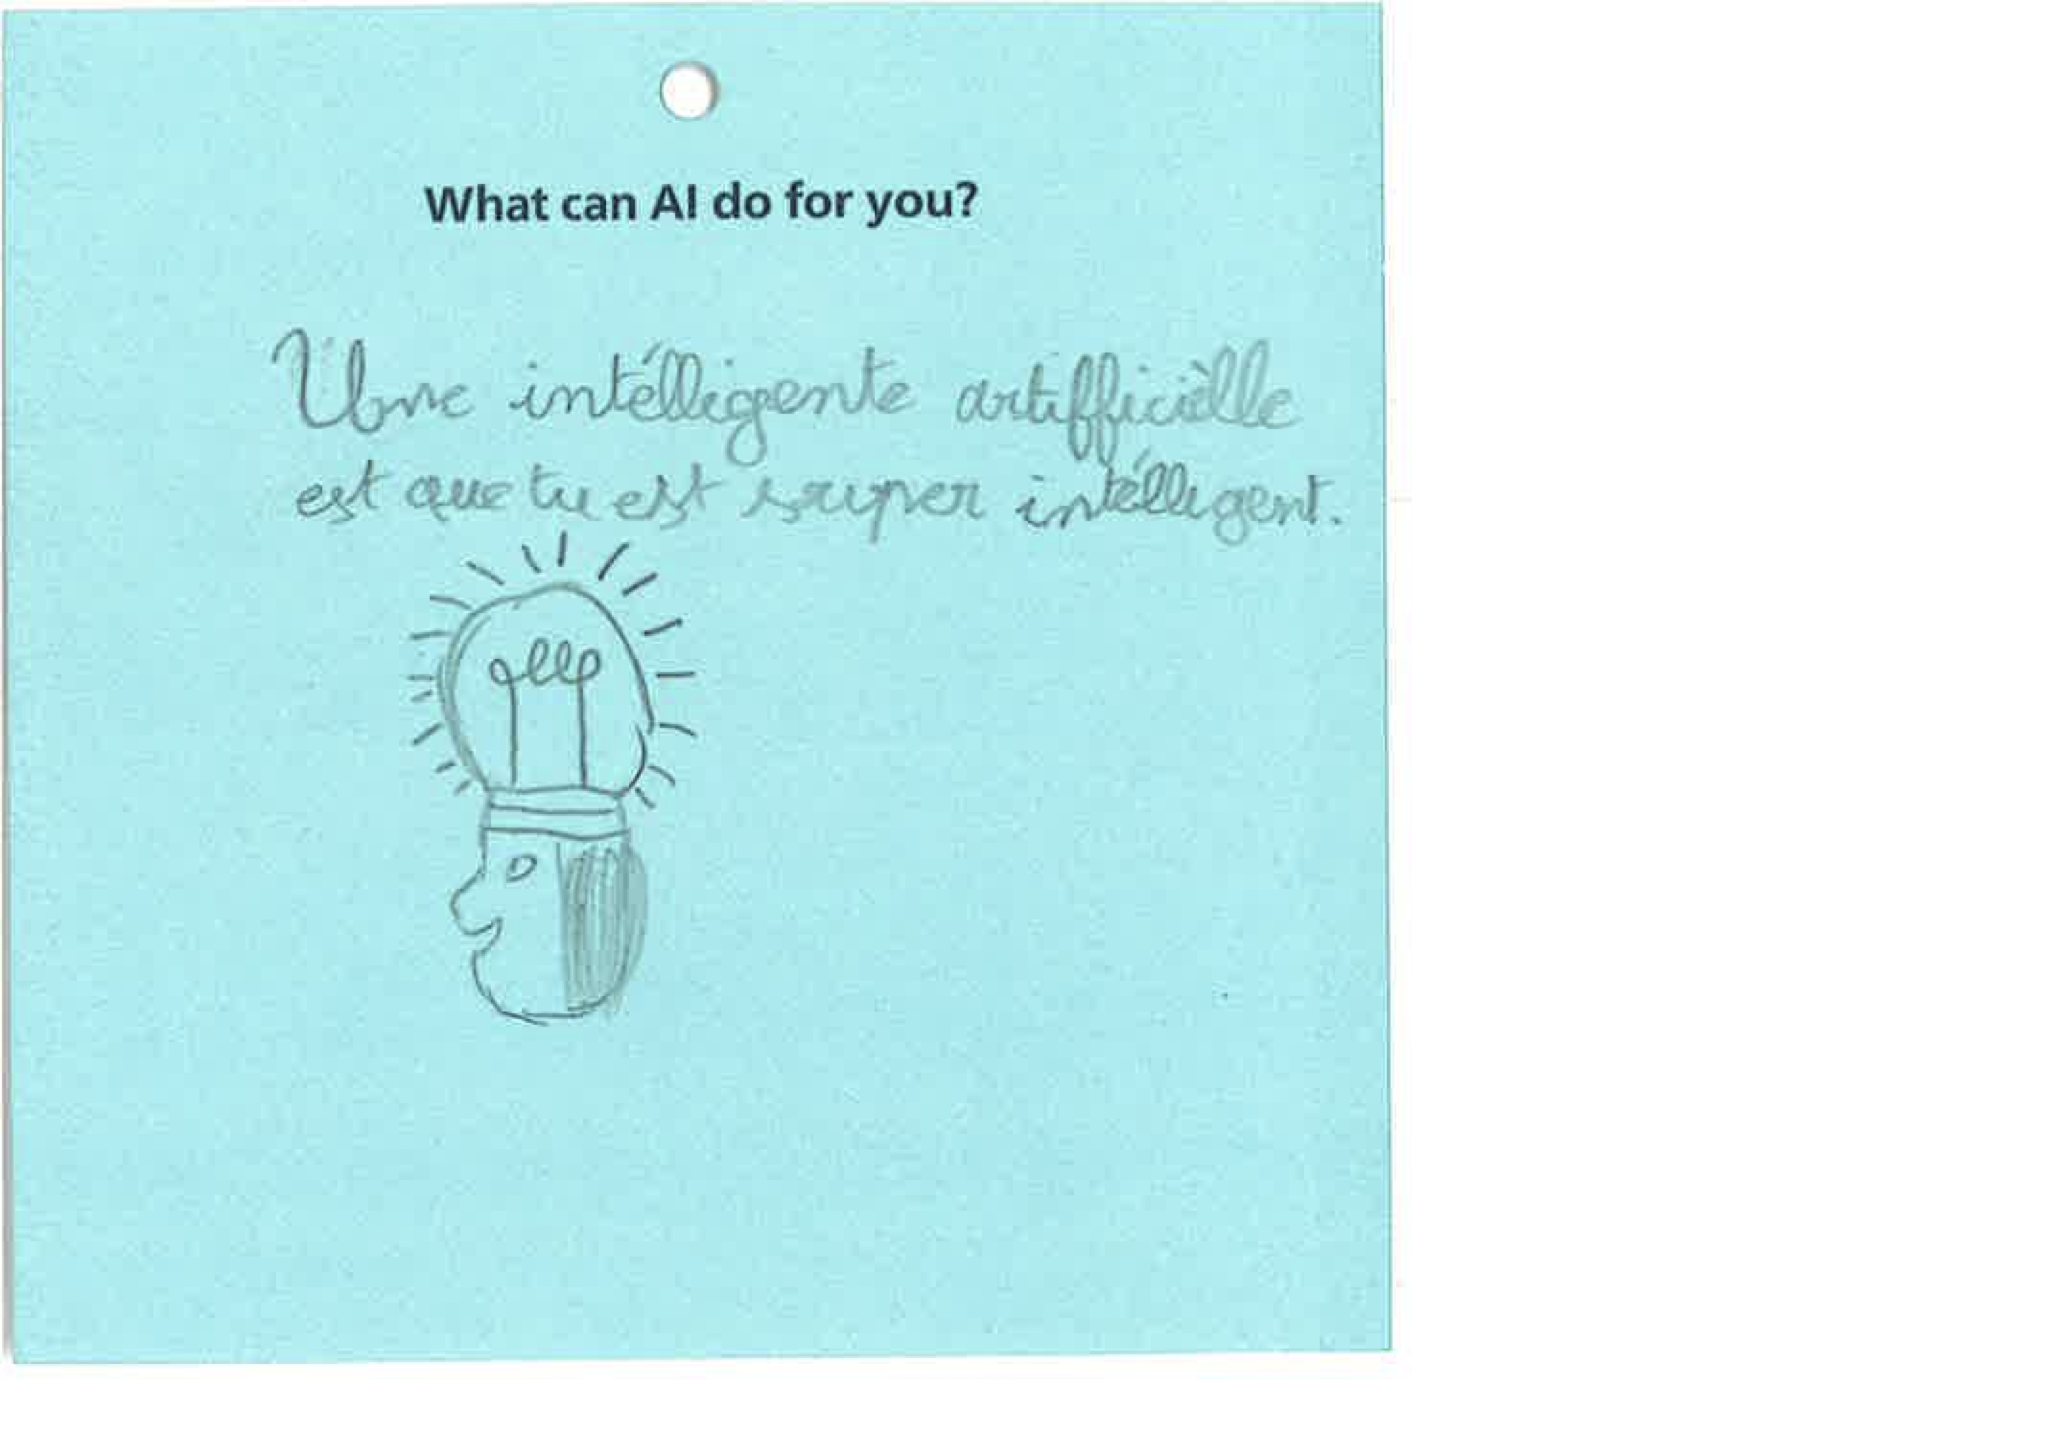 What can AI do for you?
Une intélligente artifficièlle
est que tu est super intélligent.